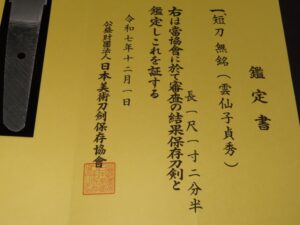 鑑定書
一、短刀 無銘(雲仙子貞秀)
長一尺一寸二分半
右は當協會に於て審査の結果保存刀剣と
鑑定しこれを証する
令和七年十二月一日
公益財團法人日本美術刀劍保存協會